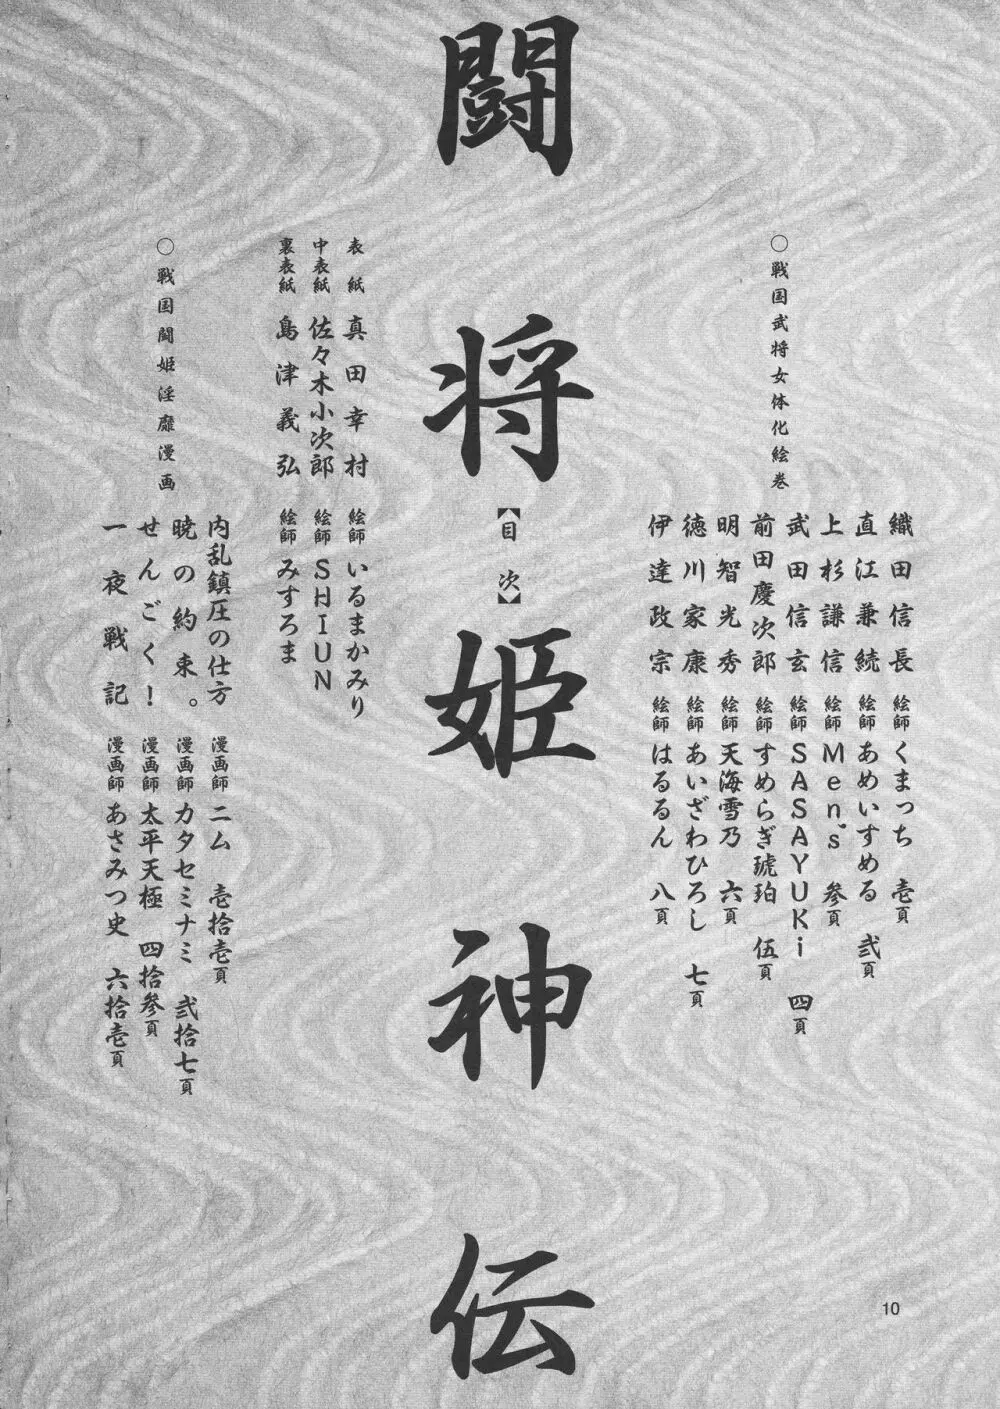 ○戦国武将女体化絵巻
織田信長 絵師 くまっち 壱頁
直江兼続 絵師 あめいすめる 弐頁
上杉謙信 絵師 Men's 参頁
武田信玄 絵師 SASAYUKi 四頁
前田慶次郎 絵師 すめらぎ琥珀 伍頁
明智光秀 絵師 天海雪乃 六頁
徳川家康 絵師 あいざわひろし 七頁
伊達政宗 絵師 はるるん 八頁
闘将姫神伝
【目次】
表紙 真田幸村 絵師 いるまかみり
中表紙 佐々木小次郎 絵師 SHIUN
裏表紙 島津義弘 絵師 みすろま
○戦国闘姫淫靡漫画
内乱鎮圧の仕方 漫画師 ニム 壱拾壱頁
暁の約束。 漫画師 カタセミナミ 弐拾七頁
せんごく! 漫画師 太平天極 四拾参頁
一夜戦記 漫画師 あさみつ史 六拾壱頁
10